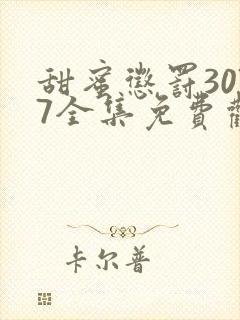 甜蜜懲罰30
7全集免費
卡尔普